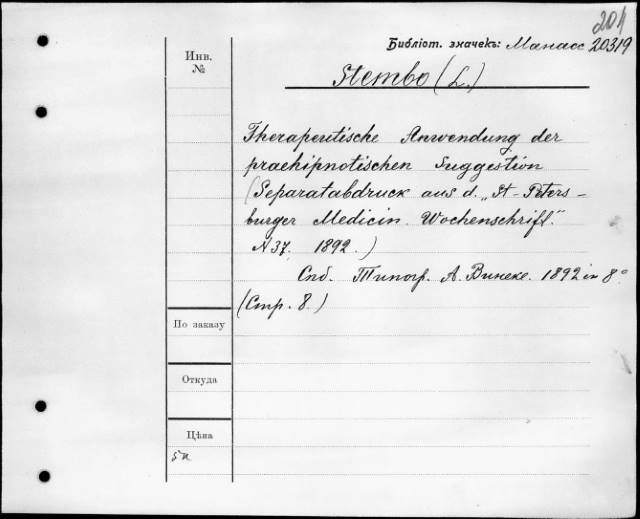 204
Библіот. значекъ: Манасс 20319
Инв.
№
Stembo (L.)
Therapeutische Anwendung der
praehipnotischen Suggestion
(Separatabdruck aus d. „St-Peters-
burger Medicin. Wochenschrift."
N 37. 1892.)
Спб. Типогр. А. Винеке. 1892 in 8°
(Стр. 8.)
По заказу
Откуда
Цѣна
5к